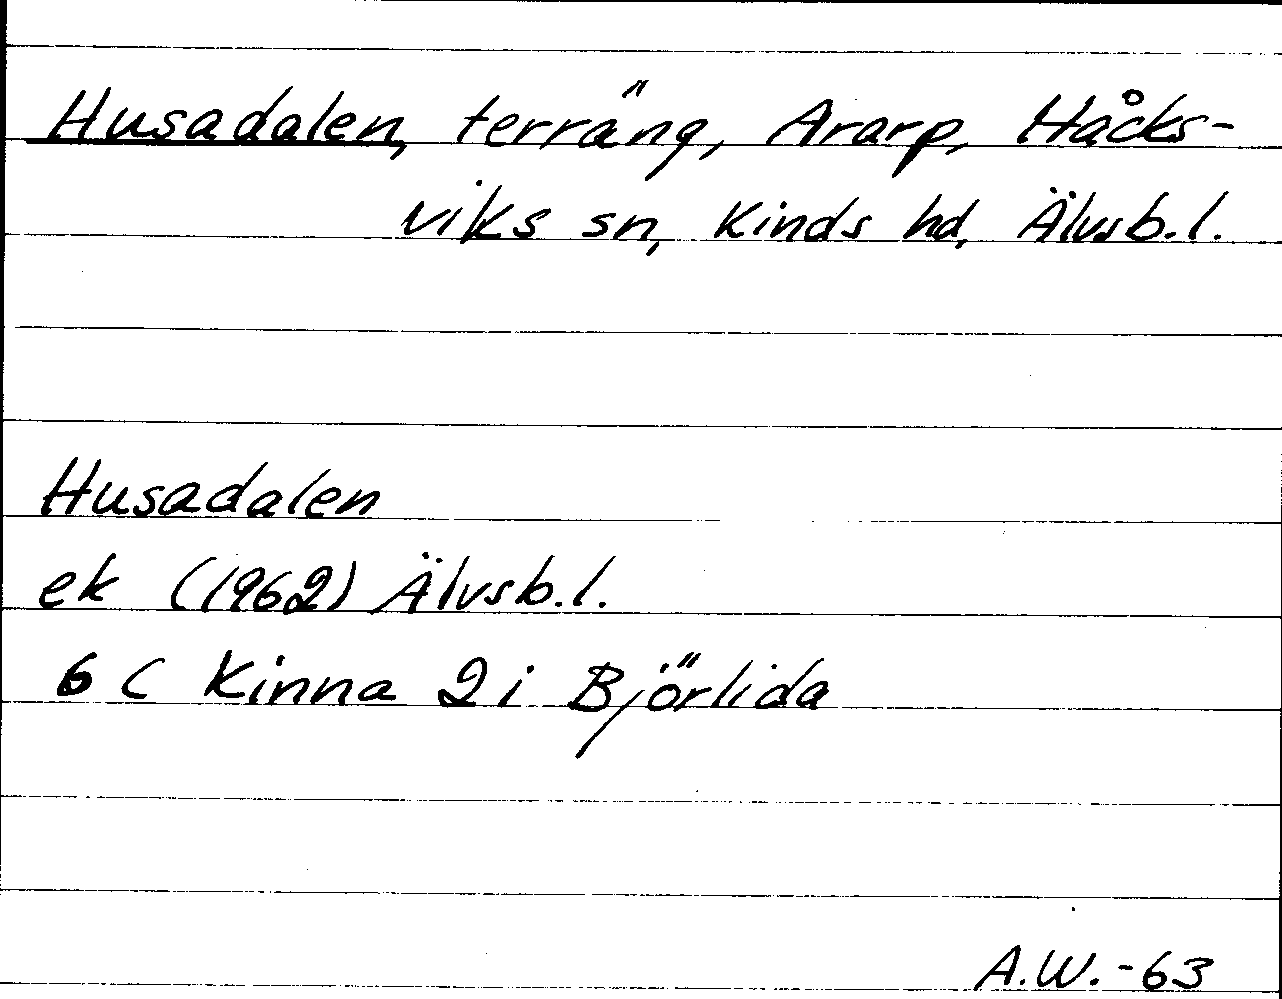 Husadalen, terräng, Ararp, Håcks-
viks sn, Kinds hd, Älvsb.l.
Husadalen
ek (1962) Älvsb.l.
6 C Kinna 2 i Björlida
A.W.-63